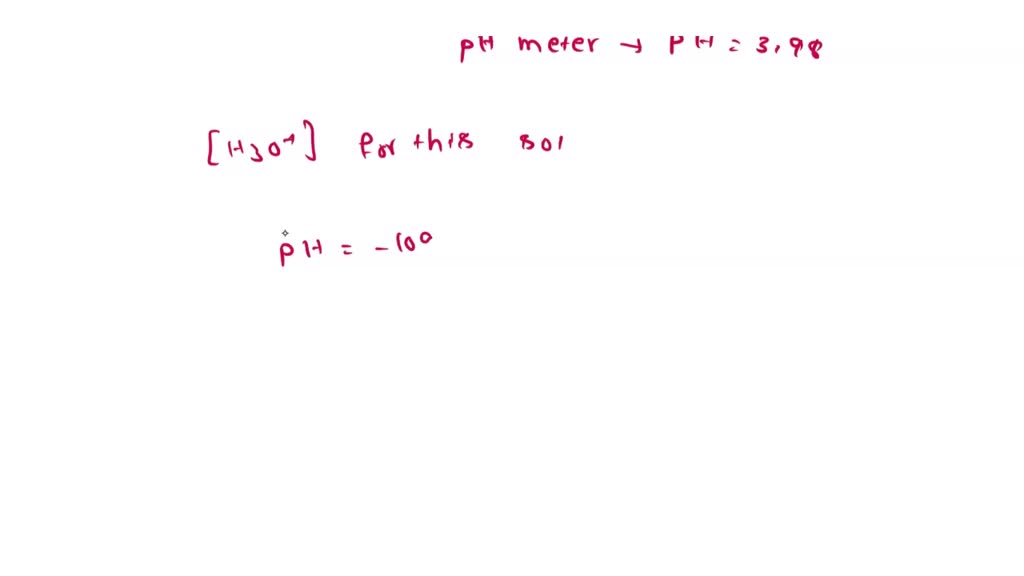 pH meter → PH = 3.98
[H3O+] for this sol
pH = -log